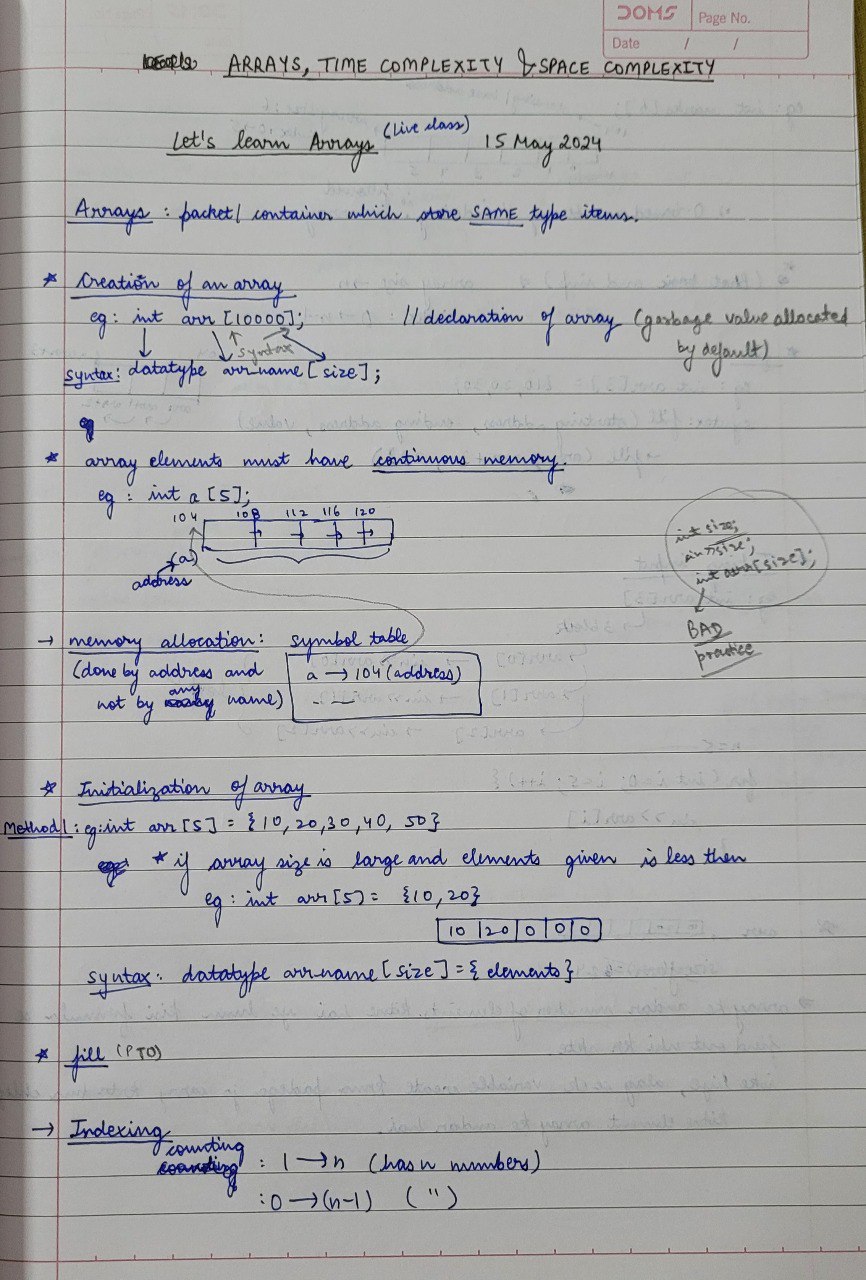 DOMS
Page No.
Date / /
ARRAYS, TIME COMPLEXITY & SPACE COMPLEXITY
Let's learn Arrays (Live class) 15 May 2024
Arrays : packet/ container which store SAME type items.
* Creation of an array
eg: int arr [10000]; : // declaration of array (garbage value allocated
by default)
syntax
syntax: datatype arr_name [size];
eg
* array elements must have continuous memory.
eg : int a [5];
104 108 112 116 120
(a)
address
int size;
cin>>size;
int arr[size];
BAD
practice
→ memory allocation: symbol table
(done by address and
not by any name)
a → 104 (address)
* Initialization of array
Method 1: eg: int arr [5] = {10, 20, 30, 40, 50}
* if array size is large and elements given is less then
eg : int arr [5] = {10, 20}
10 | 20 | 0 | 0 | 0
syntax: datatype arr_name [size] = { elements }
* fill (PTO)
→ Indexing
counting : 1 → n (has n numbers)
: 0 → (n-1) ( " )